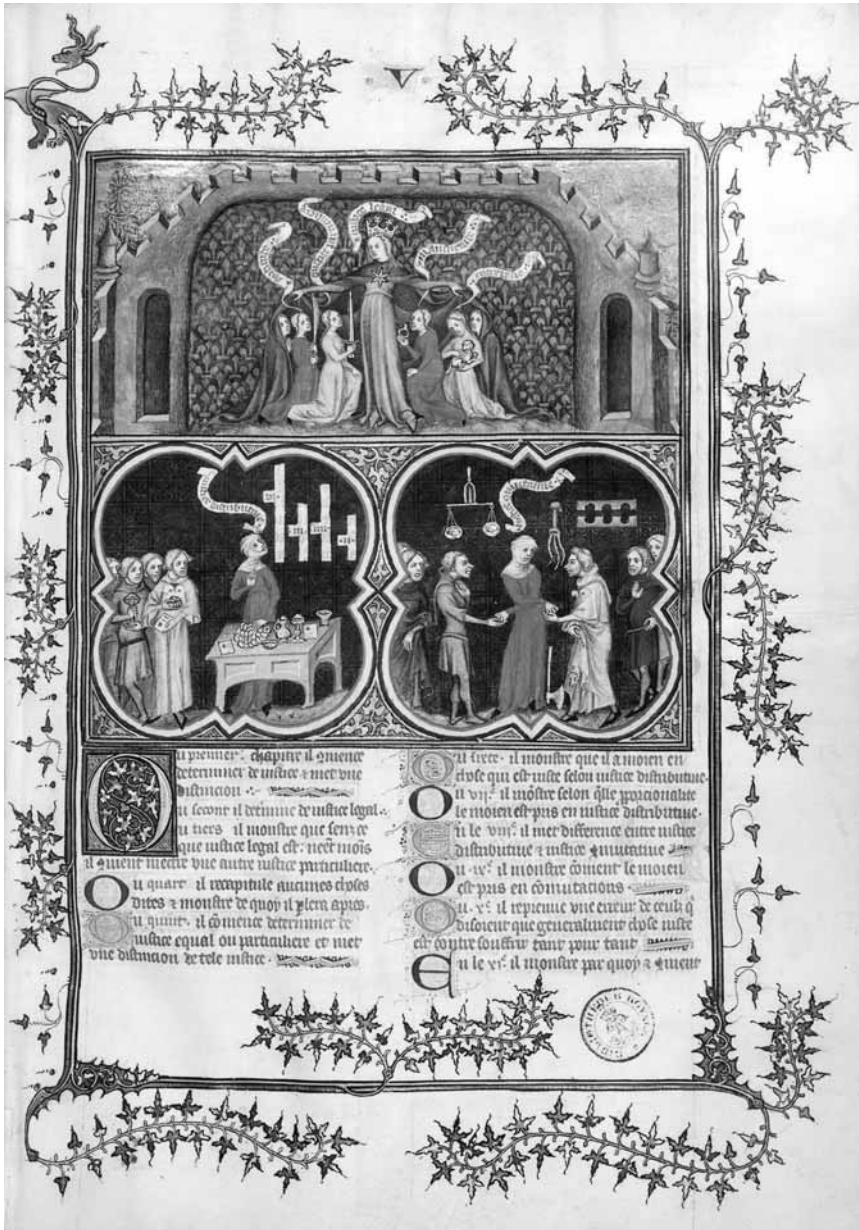 V
Ou premier chapitre il commence
determiner de iustice et met vne
distincion
Ou secont il determine de iustice legal.
Ou tiers il monstre que senz ce
que iustice legal est
il convient mectre vne autre iustice particuliere.
Ou quart il recapitule aucunes choses
dites et monstre de quoy il plera apres.
Ou quint il comence determiner de
iustice equal ou particuliere et met
vne distincion de tele iustice.
Ou sixte il monstre que il a moien en
chose qui est iuste selon iustice distributiue.
Ou vije il mostre selon qlle porcionalite
le moien est pris en iustice distributiue.
En le viije il met difference entre iustice
distributiue et iustice comutatiue
Ou ixe il monstre coment le moien
est pris en comutacions
Ou xe il repreuue vne erreur de ceulz q
disoient que generalment chose iuste
est contre souffrir tant pour tant
En le xie il monstre par quoy et comment